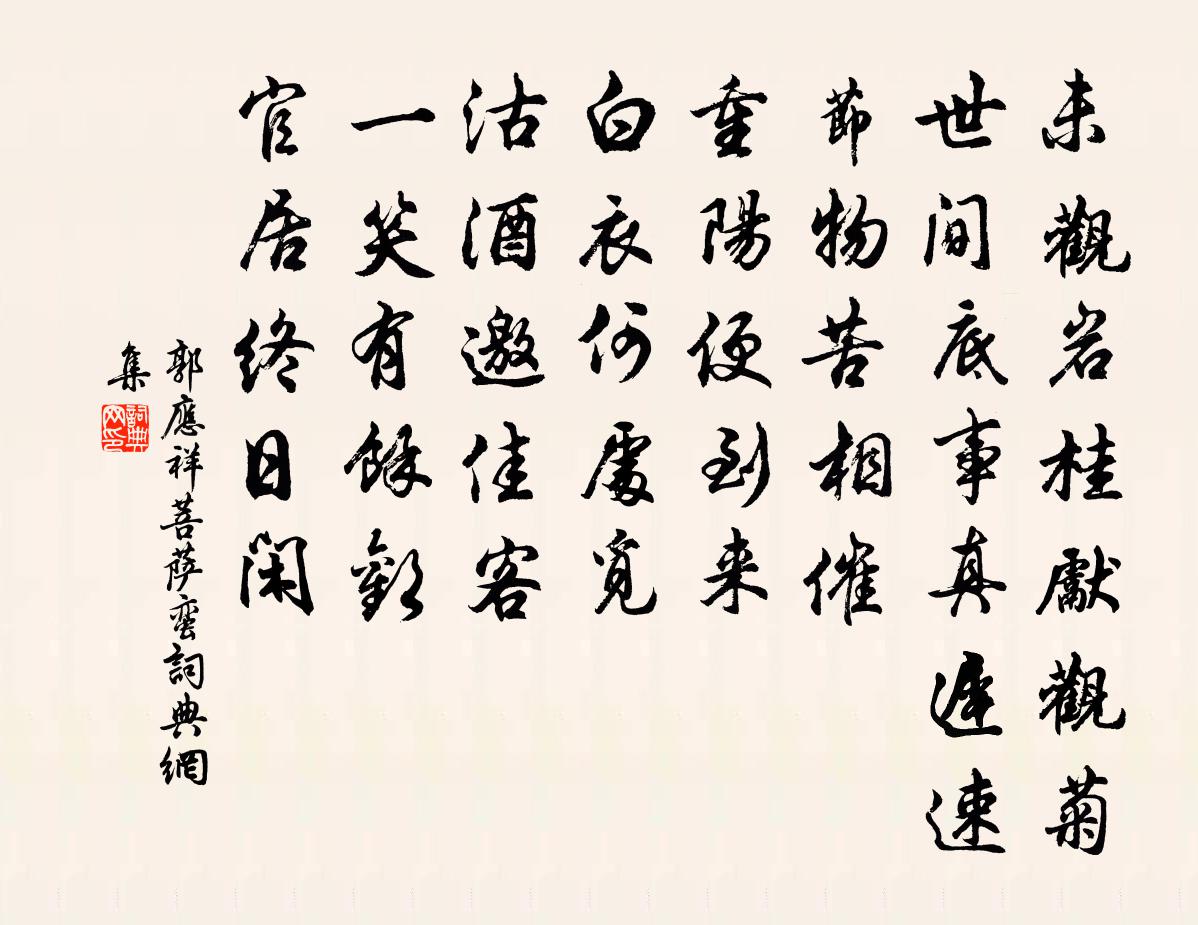 未觀岩桂獻觀菊
世間底事真遲速
節物苦相催
重陽便到来
白衣何處覓
沽酒邀佳客
一笑有餘歡
官居終日閑
郭應祥菩薩蛮詞典網
集
詞典网印